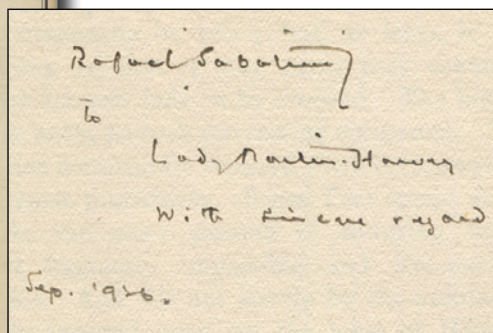 Rafael Sabatini
to
Lady Martin-Harvey
With sincere regard
Sep. 1936.